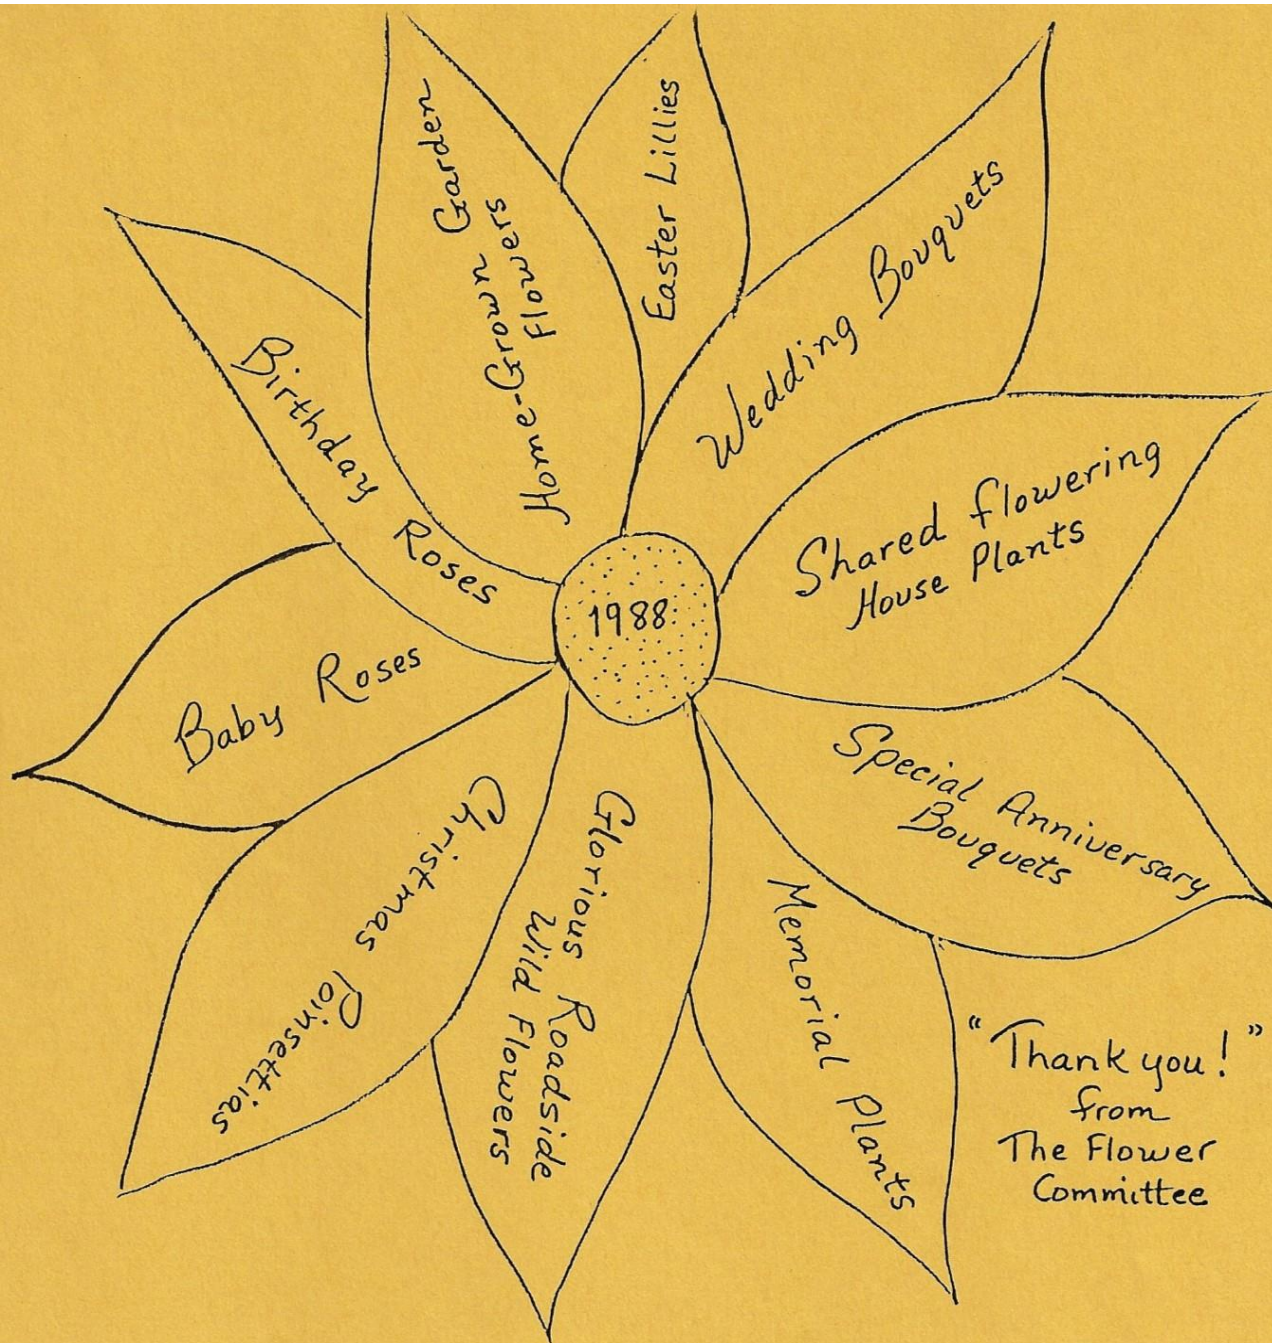 Home-Grown Garden
Flowers
Easter Lillies
Wedding Bouquets
Shared flowering
House Plants
Special Anniversary
Bouquets
Memorial Plants
Glorious Roadside
Wild Flowers
Christmas Poinsettias
Baby Roses
Birthday Roses
1988
"Thank you!"
from
The Flower
Committee